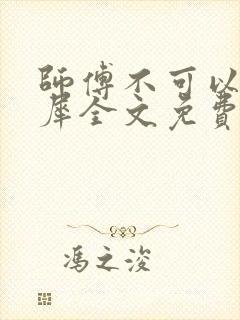 師傅不可以
犀全文免費
馮之浚